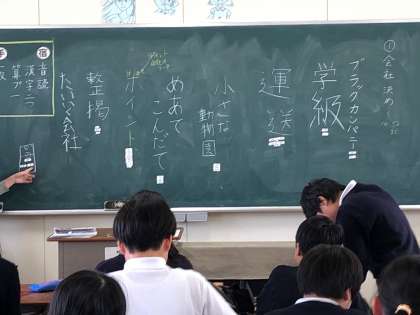 ①会社決め
ブラックカンパニー
学級
運送
小さな
動物園
めあて
こんだて
ポイント
整掲
たいいく会社
宿
音読
漢字
算プ